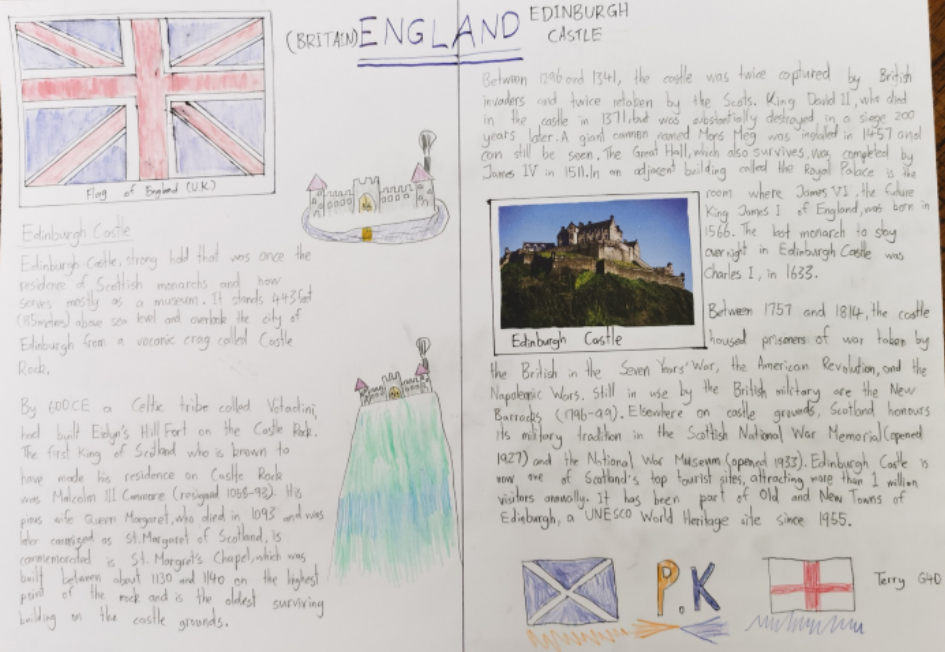 (BRITAIN) ENGLAND
EDINBURGH
CASTLE
Flag of England (U.K.)
Edinburgh Castle
Edinburgh Castle, strong hold that was once the
residence of Scottish monarchs and now
serves mostly as a museum. It stands 443 feet
(135 metres) above sea level and overlook the city of
Edinburgh from a voconic crag called Castle
Rock.
By 600CE a Celtic tribe called Votadini,
had built Eidyn's Hill Fort on the Castle Rock.
The first King of Scotland who is known to
have made his residence on Castle Rock
was Malcolm III Canmore (resigned 1058-93). His
pious wife Queen Margaret, who died in 1093 and was
later canonized as St. Margaret of Scotland, is
commemorated is St. Margret's Chapel, which was
built between about 1130 and 1140 on the highest
point of the rock and is the oldest surviving
building on the castle grounds.
Between 1296 and 1341, the castle was twice captured by British
invaders and twice retaken by the Scots. King David II, who died
in the castle in 1371, but was substantially destroyed in a siege 200
years later. A giant cannon named Mons Meg was installed in 1457 and
can still be seen. The Great Hall, which also survives, was completed by
James IV in 1511. In an adjacent building called the Royal Palace is the
room where James VI, the future
King James I of England, was born in
1566. The last monarch to stay
overnight in Edinburgh Castle was
Charles I, in 1633.
Edinburgh Castle
Between 1757 and 1814, the castle
housed prisoners of war taken by
the British in the Seven Years' War, the American Revolution, and the
Napoleonic Wars. Still in use by the British military are the New
Barracks (1796-99). Elsewhere on castle grounds, Scotland honours
its military tradition in the Scottish National War Memorial (opened
1927) and the National War Museum (opened 1933). Edinburgh Castle is
now one of Scotland's top tourist sites, attracting more than 1 million
visitors annually. It has been part of Old and New Towns of
Edinburgh, a UNESCO World Heritage site since 1955.
P.K
Terry G4D